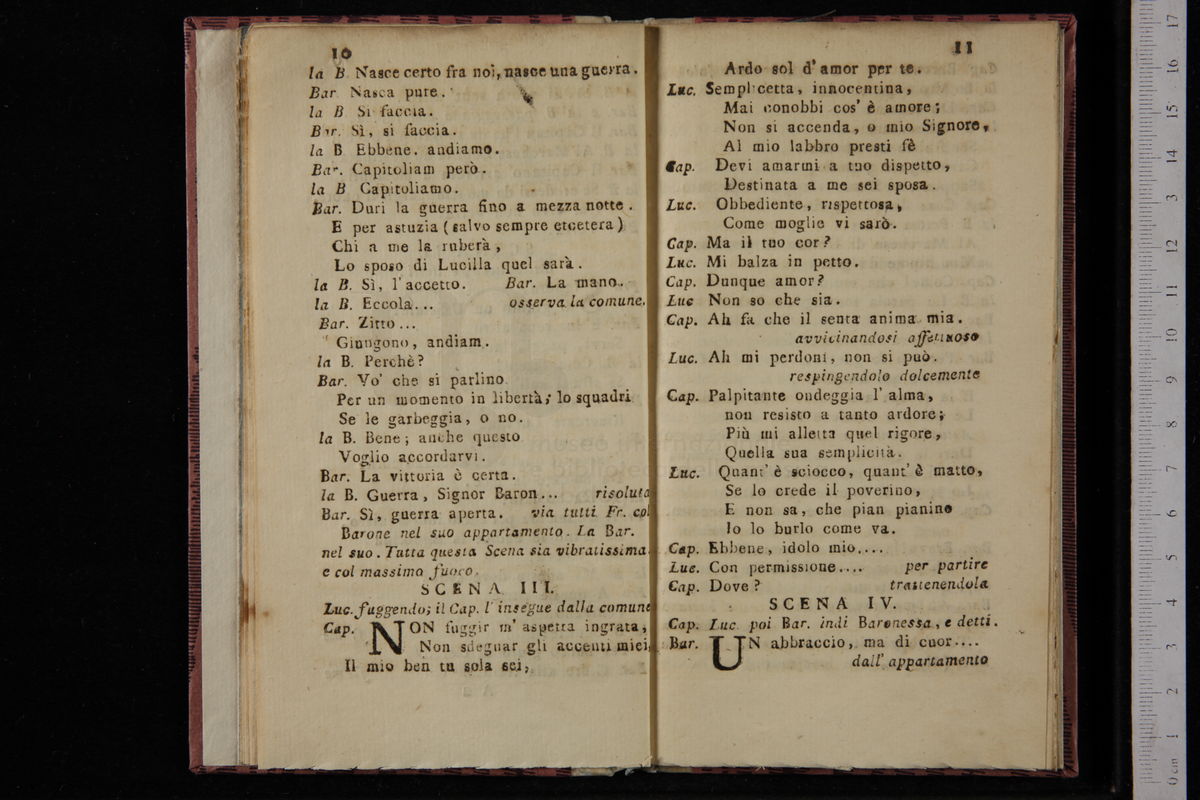 10
la B. Nasce certo fra noi, nasce una guerra.
Bar. Nasca pure.
la B. Si faccia.
Bar. Sì, si faccia.
la B. Ebbene. andiamo.
Bar. Capitoliam però.
la B. Capitoliamo.
Bar. Duri la guerra fino a mezza notte.
E per astuzia (salvo sempre etcetera)
Chi a me la ruberà,
Lo sposo di Lucilla quel sarà.
la B. Sì, l'accetto. Bar. La mano..
la B. Eccola... osserva la comune.
Bar. Zitto...
Giungono, andiam.
la B. Perchè?
Bar. Vo' che si parlino
Per un momento in libertà; lo squadri
Se le garbeggia, o no.
la B. Bene; anche questo
Voglio accordarvi.
Bar. La vittoria è certa.
la B. Guerra, Signor Baron... risoluta
Bar. Sì, guerra aperta. via tutti. Fr. col
Barone nel suo appartamento. La Bar.
nel suo. Tutta questa Scena sia vibratissima
e col massimo fuoco.
SCENA III.
Luc. fuggendo; il Cap. l'insegue dalla comune
Cap. NON fuggir m'aspetta ingrata,
Non sdegnar gli accenti miei,
Il mio ben tu sola sei,
11
Ardo sol d'amor per te.
Luc. Semplicetta, innocentina,
Mai conobbi cos' è amore;
Non si accenda, o mio Signore,
Al mio labbro presti fè
Cap. Devi amarmi a tuo dispetto,
Destinata a me sei sposa.
Luc. Obbediente, rispettosa,
Come moglie vi sarò.
Cap. Ma il tuo cor?
Luc. Mi balza in petto.
Cap. Dunque amor?
Luc Non so che sia.
Cap. Ah fa che il senta anima mia.
avvicinandosi affettuoso
Luc. Ah mi perdoni, non si può.
respingendolo dolcemente
Cap. Palpitante ondeggia l'alma,
non resisto a tanto ardore;
Più mi alletta quel rigore,
Quella sua semplicità.
Luc. Quant' è sciocco, quant' è matto,
Se lo crede il poverino,
E non sa, che pian pianino
Io lo burlo come va.
Cap. Ebbene, idolo mio....
Luc. Con permissione.... per partire
Cap. Dove? trattenendola
SCENA IV.
Cap. Luc. poi Bar. indi Baronessa, e detti.
Bar. UN abbraccio, ma di cuor....
dall' appartamento